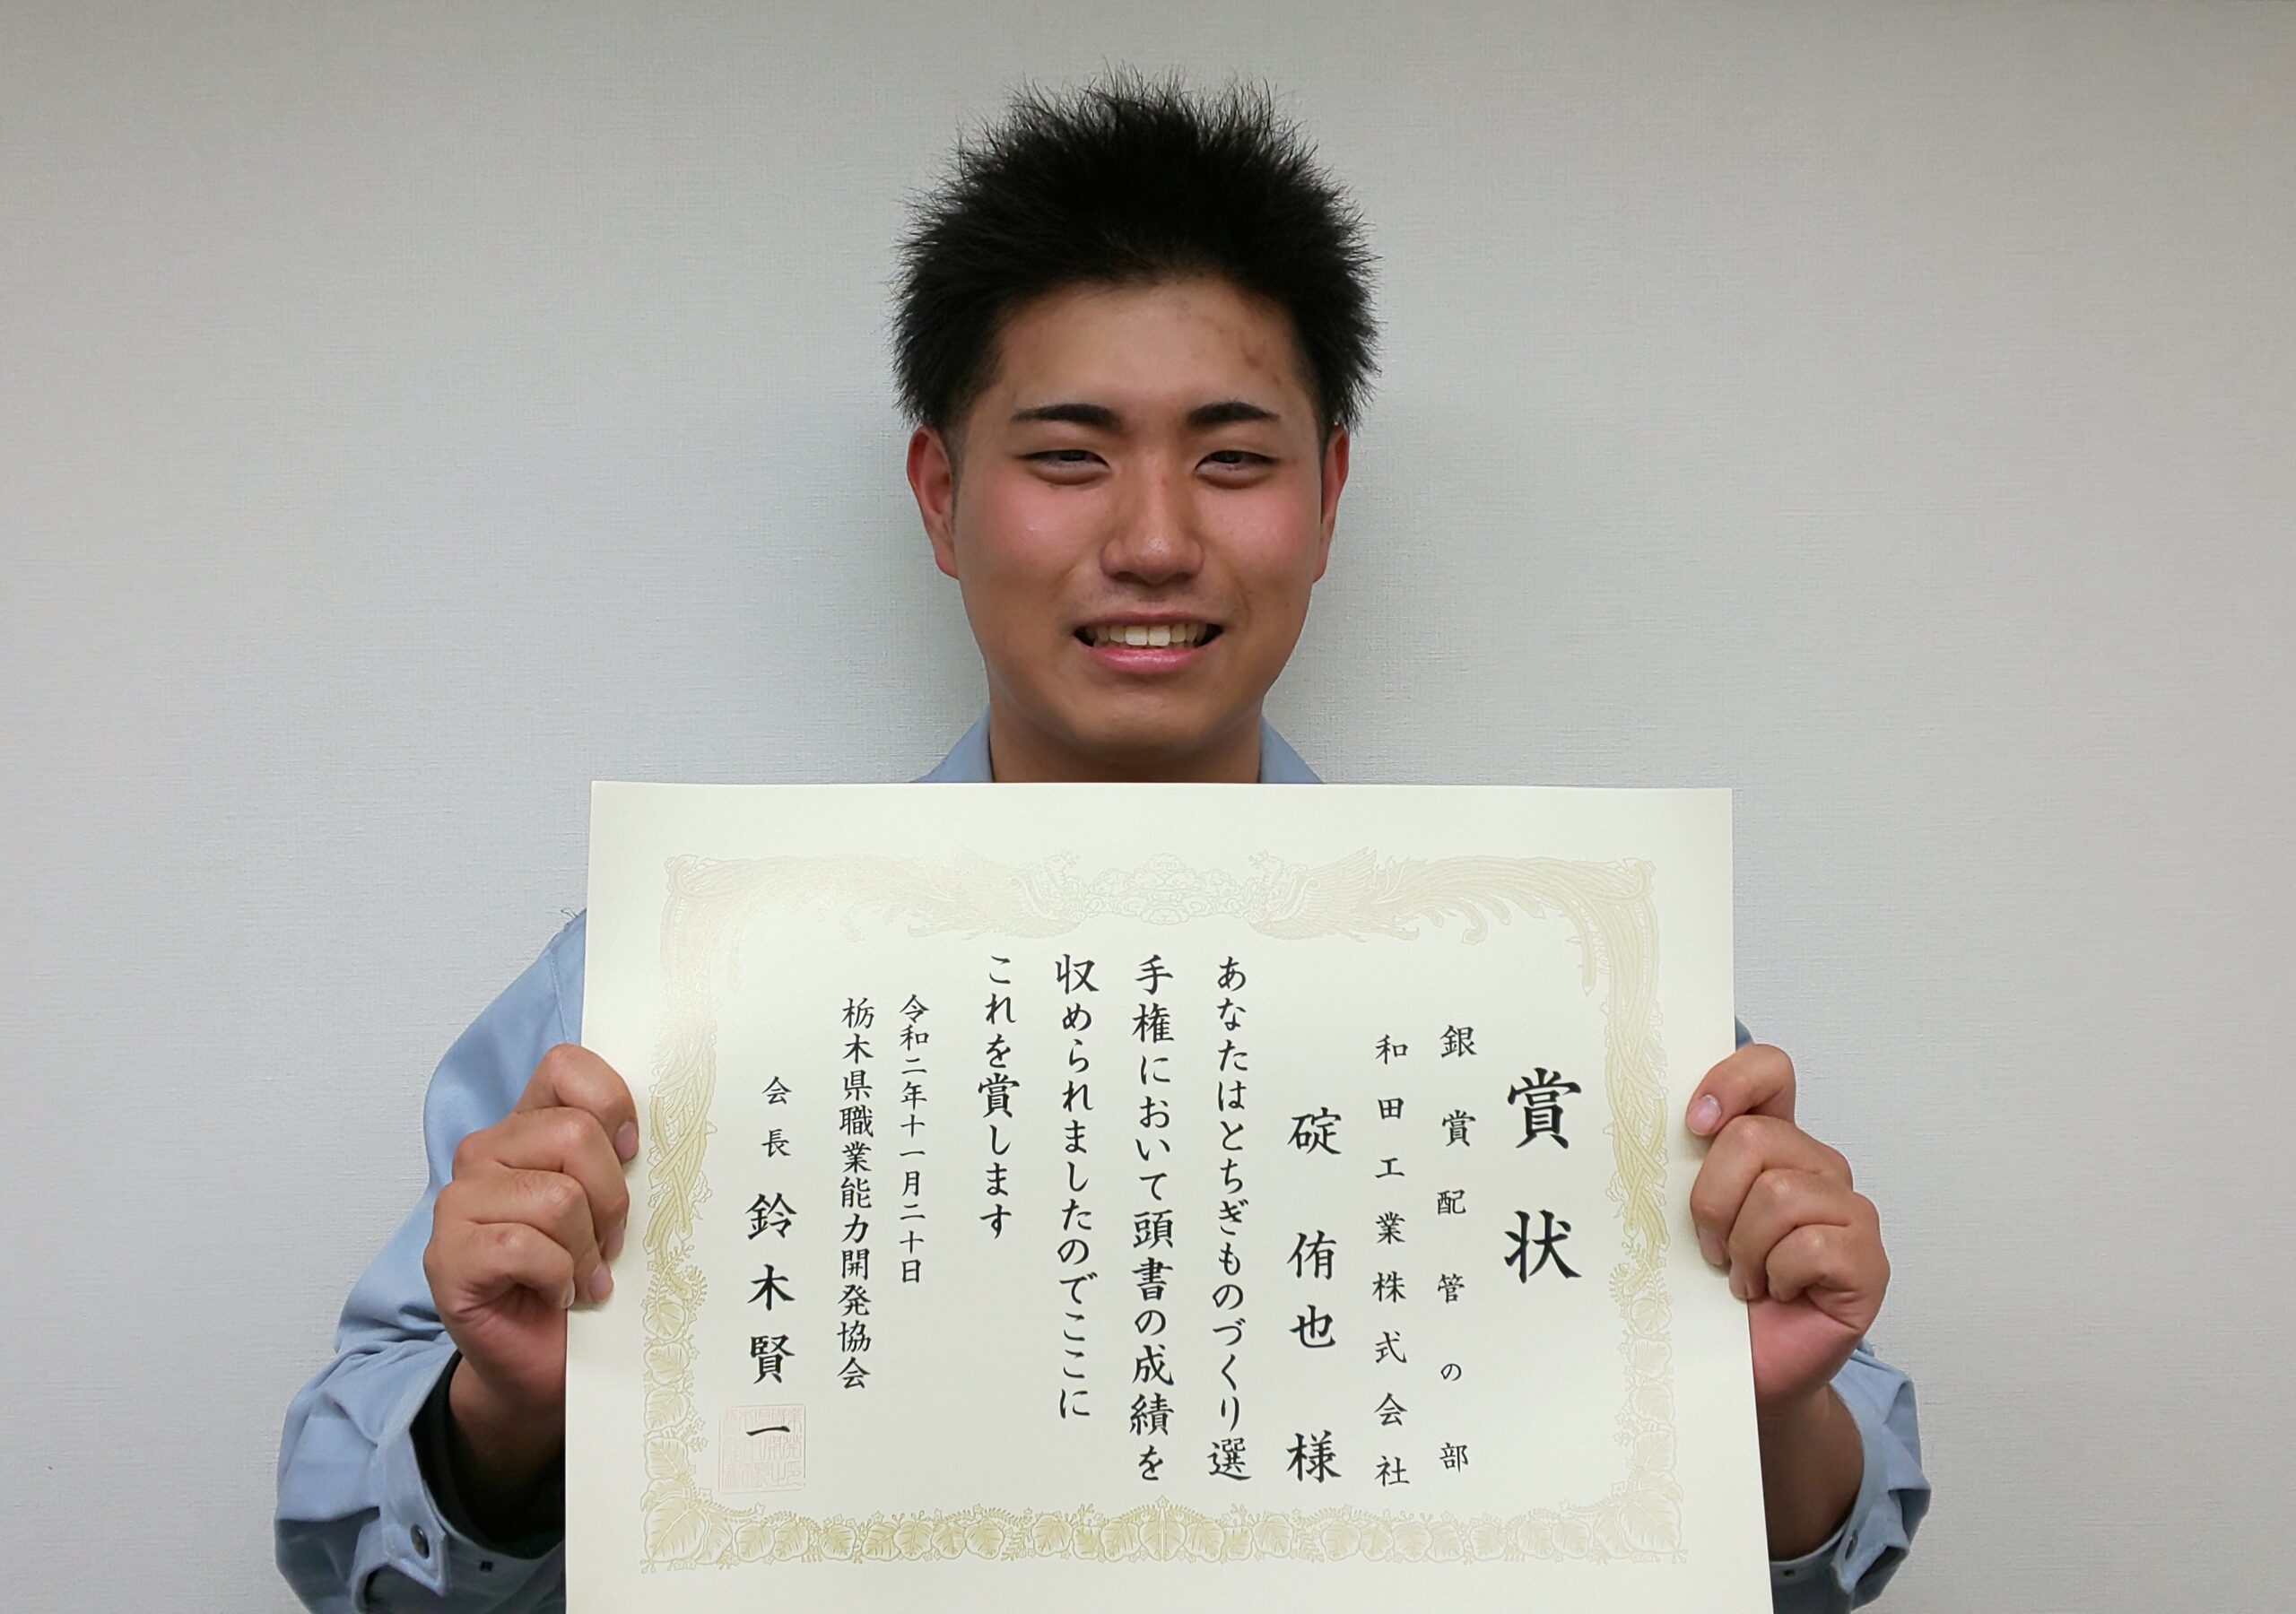 賞状
銀賞 配管の部
和田工業株式会社
碇 侑也 様
あなたはとちぎものづくり選
手権において頭書の成績を
収められましたのでここに
これを賞します
令和二年十一月二十日
栃木県職業能力開発協会
会長 鈴木賢一